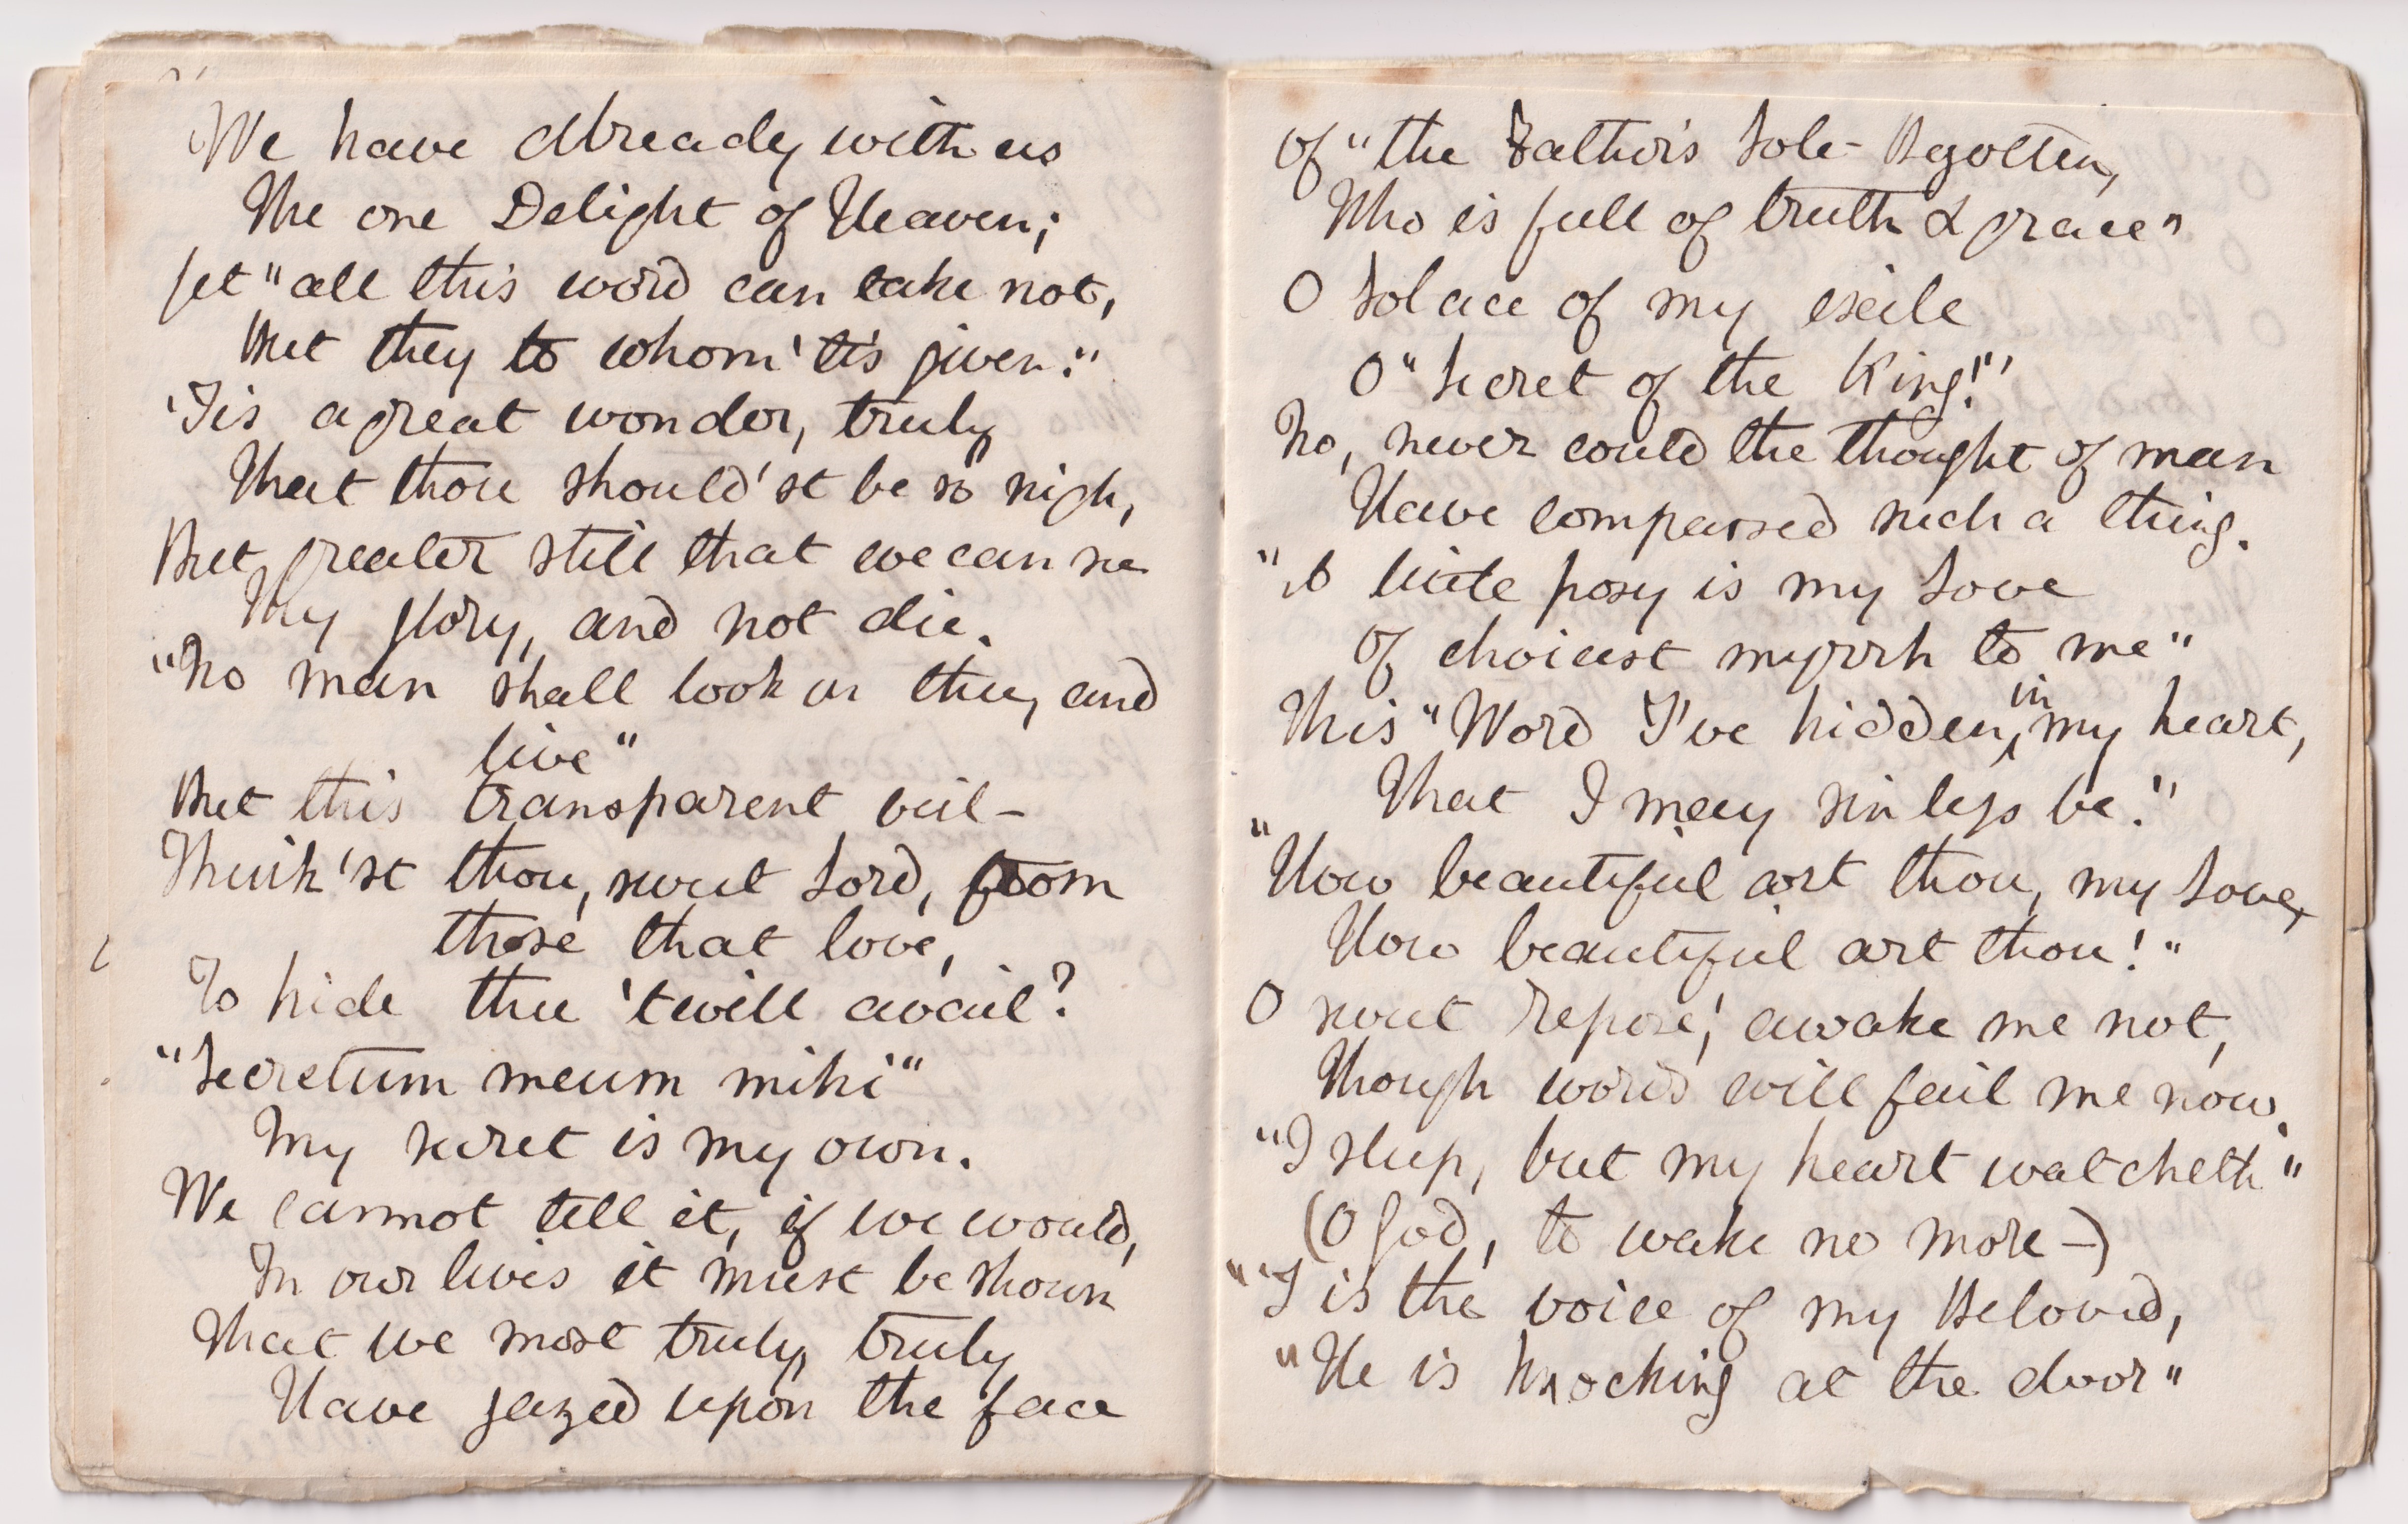 We have already with us
The one Delight of Heaven;
Yet "all this word can take not,
But they to whom 'tis given."
'Tis a great wonder, truly
That thou should'st be so nigh,
But greater still that we can see
Thy glory, and not die.
"No man shall look on thee, and
live"
But this transparent veil –
Think'st thou, sweet Lord, from
those that love,
To hide thee 'twill avail?
"Secretum meum mihi"
My secret is my own.
We cannot tell it, if we would,
In our lives it must be shown
That we most truly, truly
Have gazed upon the face
Of "the Father's Sole-Begotten,
Who is full of truth & grace"
O Solace of my exile
O "Secret of the King!"'
No, never could the thought of man
Have compassed such a thing.
"A little posy is my Love
Of choicest myrrh to me"
This "Word I've hidden in my heart,
That I may sinless be."
"How beautiful art thou, my Love,
How beautiful art thou!"
O sweet repose! awake me not,
Though words will fail me now.
"I sleep, but my heart watcheth"
(O God, to wake no more –)
"'Tis the voice of my Beloved,
"He is knocking at the door"